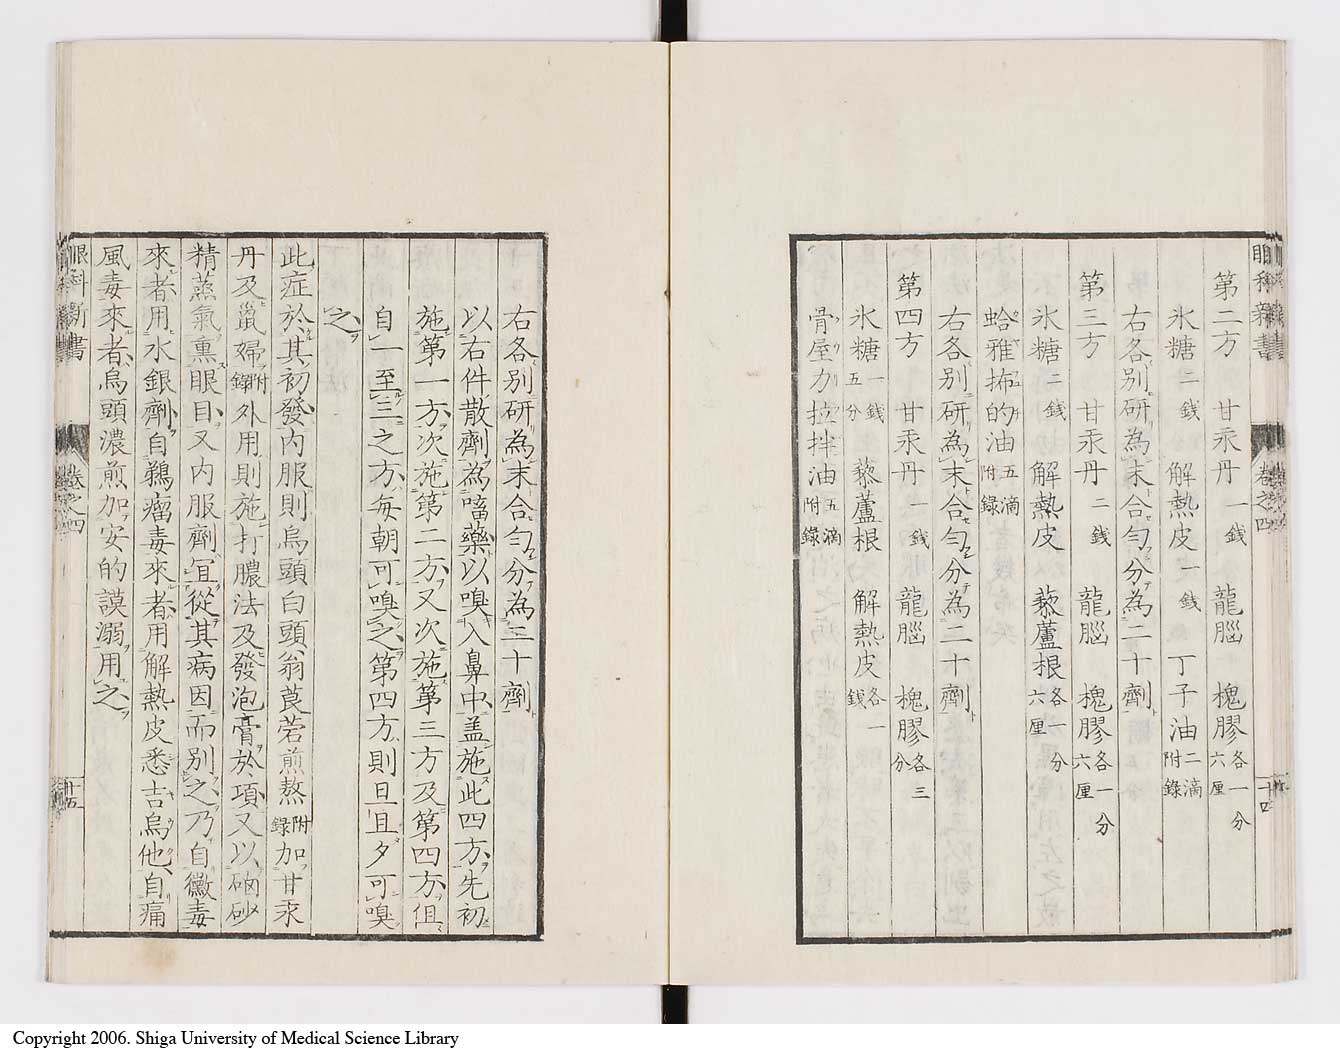 眼科新書
卷之四
十四
第二方 甘汞丹一錢 龍腦 槐膠各一分六厘
氷糖二錢 解熱皮一錢 丁子油二滴附錄
右各別研為末合勻分為二十劑
第三方 甘汞丹二錢 龍腦 槐膠各一分六厘
氷糖二錢 解熱皮 藜蘆根各一分六厘
蛤雅拂的油五滴附錄
右各別研為末合勻分為二十劑
第四方 甘汞丹一錢 龍腦 槐膠各三分
氷糖一錢五分 藜蘆根 解熱皮各一錢
骨屋力拉拌油五滴附錄
右各別研為末合勻分為三十劑
以右件散劑為㗜藥以嗅入鼻中盖施此四方先初
施第一方次施第二方又次施第三方及第四方但
自一至三之方每朝可嗅之第四方則旦且夕可嗅
之
此症於其初發內服則烏頭白頭翁莨菪煎熬附錄加甘汞
丹及鼠婦附錄外用則施打膿法及發泡膏於項又以硇砂
精蒸氣熏眼目又內服劑宜從其病因而別之乃自黴毒
來者用水銀劑自鵝瘤毒來者用解熱皮悉吉烏他自痛
風毒來者烏頭濃煎加安的謨溺用之
眼科新書
卷之四
十五
Copyright 2006. Shiga University of Medical Science Library